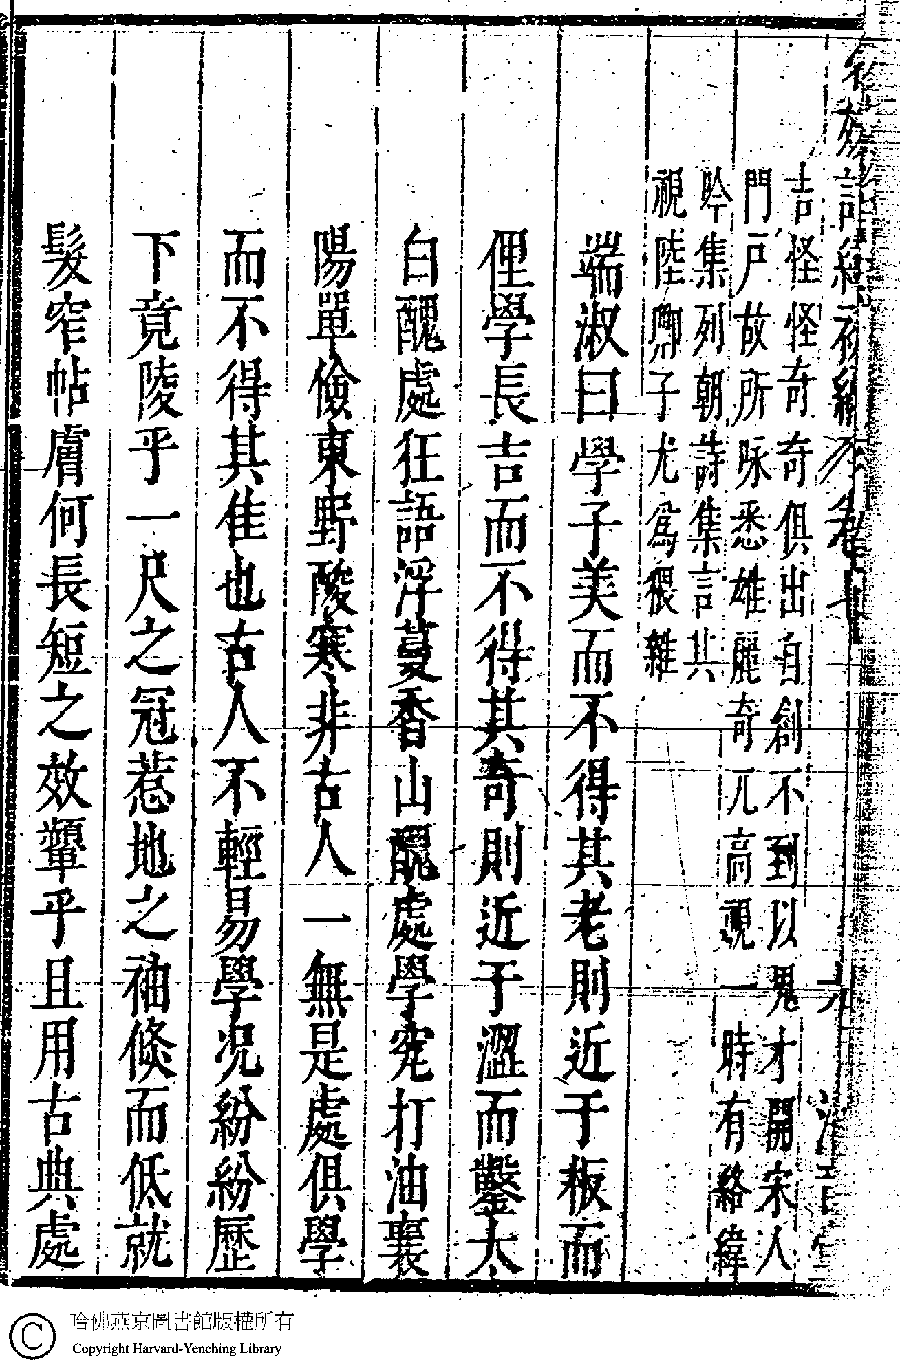 名媛詩緯初編 卷七 九
吉怪怪奇奇俱出自創不到以鬼才開宋人
門戸故所咏悉雄麗奇兀高視一時有絡緯
吟集列朝詩集言其
視陸卿子尤爲猥雜
端淑曰學子美而不得其老則近于板而
俚學長吉而不得其奇則近于澀而鑿太
白醜處狂語浮蔓香山醜處學究打油襄
陽單儉東野酸寒非古人一無是處俱學
而不得其佳也古人不輕易學况紛紛歷
下竟陵乎一尺之冠惹地之袖倏而低就
髮窄帖膚何長短之效顰乎且用古典處
哈佛燕京圖書館版權所有
Copyright Harvard-Yenching Library